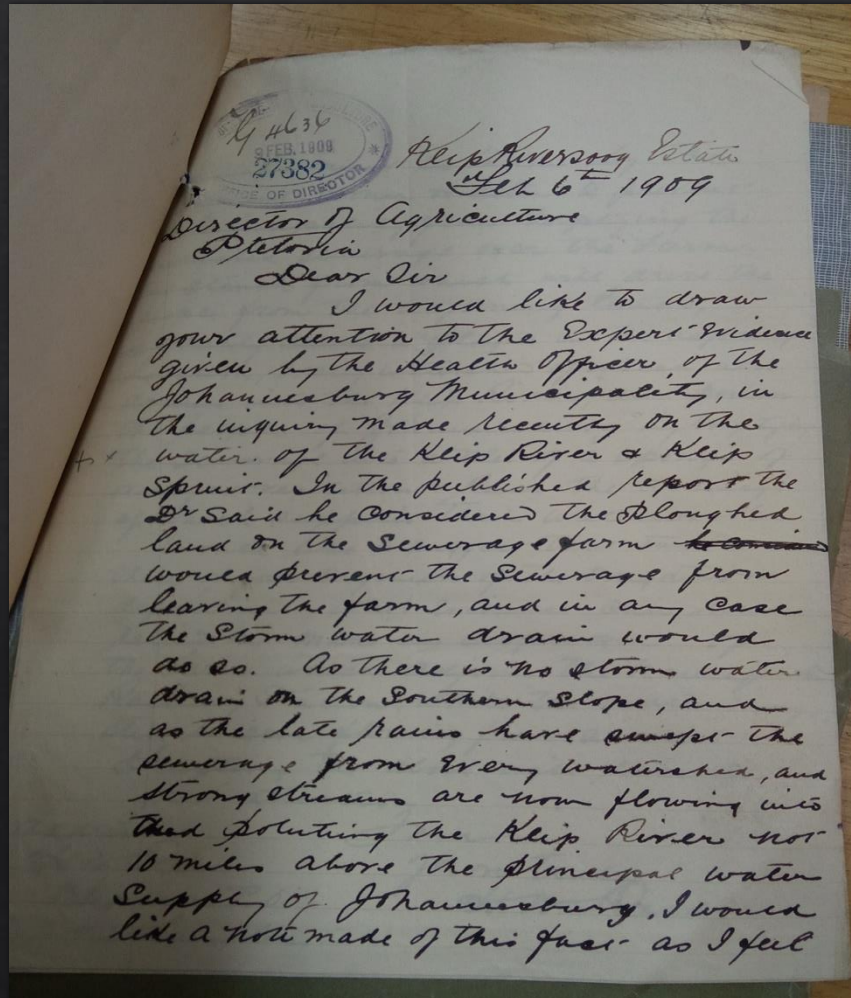 G 4636
8 FEB. 1909
27382
OF DIRECTOR
Klip Riversoog Estate
Feb 6th 1909
Director of Agriculture
Pretoria
Dear Sir
I would like to draw
your attention to the Expert Evidence
given by the Health Officer, of the
Johannesburg Municipality, in
the inquiry made recently on the
water. of the Klip River & Klip
Spruit. In the published report the
Dr said he considered the ploughed
land on the Sewerage farm
would prevent the Sewerage from
leaving the farm, and in any case
the Storm water drain would
do so. As there is no storm water
drain on the Southern Slope, and
as the late rains have swept the
sewerage from every watershed, and
strong streams are now flowing into
poluting the Klip River not
10 miles above the principal water
Supply of Johannesburg. I would
like a note made of this fact as I feel